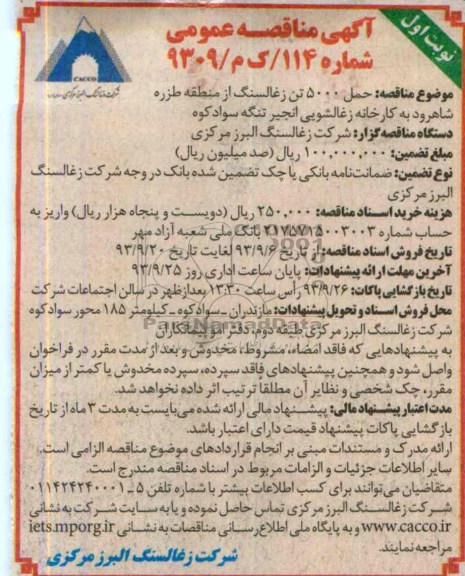 نوبت اول
آگهی مناقصه عمومی
شماره ۱۱۴/ک م/۹۳۰۹
CACCO
موضوع مناقصه: حمل ۵۰۰۰ تن زغالسنگ از منطقه طزره
شاهرود به کارخانه زغالشویی انجیر تنگه سوادکوه
دستگاه مناقصه‌گزار: شرکت زغالسنگ البرز مرکزی
مبلغ تضمین: ۱۰۰,۰۰۰,۰۰۰ ریال (صد میلیون ریال)
نوع تضمین: ضمانت‌نامه بانکی یا چک تضمین شده بانک در وجه شرکت زغالسنگ
البرز مرکزی
هزینه خرید اسناد مناقصه: ۲۵۰,۰۰۰ ریال (دویست و پنجاه هزار ریال) واریز به
حساب شماره ۲۱۷۵۷۱۵۰۰۳۰۰۳ بانک ملی شعبه آزاد مهر
تاریخ فروش اسناد مناقصه: از تاریخ ۹۳/۹/۶ لغایت تاریخ ۹۳/۹/۲۰
آخرین مهلت ارائه پیشنهادات: پایان ساعت اداری روز ۹۳/۹/۲۵
تاریخ بازگشایی پاکات: ۹۳/۹/۲۶ رأس ساعت ۱۳:۳۰ بعدازظهر در سالن اجتماعات شرکت
محل فروش اسناد و تحویل پیشنهادات: مازندران ـ سوادکوه ـ کیلومتر ۱۸۵ محور سوادکوه
شرکت زغالسنگ البرز مرکزی طبقه دوم، دفتر امور پیمانکاران
به پیشنهادهایی که فاقد امضاء، مشروط، مخدوش و بعد از مدت مقرر در فراخوان
واصل شود و همچنین پیشنهادهای فاقد سپرده، سپرده مخدوش یا کمتر از میزان
مقرر، چک شخصی و نظایر آن مطلقاً ترتیب اثر داده نخواهد شد.
مدت اعتبار پیشنهاد مالی: پیشنهاد مالی ارائه شده می‌بایست به مدت ۳ ماه از تاریخ
بازگشایی پاکات پیشنهاد قیمت دارای اعتبار باشد.
ارائه مدرک و مستندات مبنی بر انجام قراردادهای موضوع مناقصه الزامی است.
سایر اطلاعات جزئیات و الزامات مربوط در اسناد مناقصه مندرج است.
متقاضیان می‌توانند برای کسب اطلاعات بیشتر با شماره تلفن ۵ ـ ۰۱۱۴۲۴۲۴۰۰۰۱
شرکت زغالسنگ البرز مرکزی تماس حاصل نموده و یا به سایت شرکت به نشانی
www.cacco.ir و به پایگاه ملی اطلاع‌رسانی مناقصات به نشانی iets.mporg.ir
مراجعه نمایند.
شرکت زغالسنگ البرز مرکزی